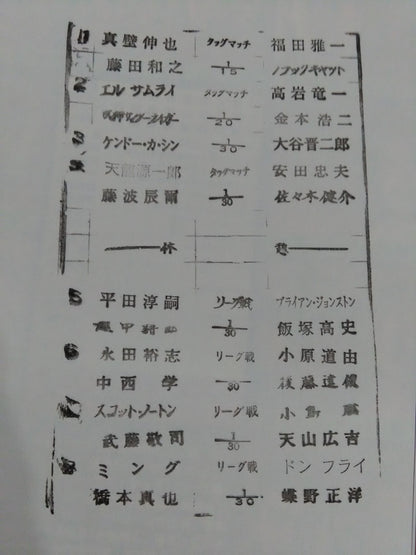 1 真壁伸也 タッグマッチ 福田雅一
藤田和之 1/15 ブラックキャット
2 エル サムライ タッグマッチ 高岩竜一
1/20 金本浩二
3 ケンドー・カ・シン 1/30 大谷晋二郎
4 天龍源一郎 タッグマッチ 安田忠夫
藤波辰爾 1/30 佐々木健介
休 憩
5 平田淳嗣 リーグ戦 ブライアン・ジョンストン
1/30 飯塚高史
6 永田裕志 リーグ戦 小原道由
中西 学 1/30 後藤達俊
7 スコット・ノートン リーグ戦 小島 聡
武藤敬司 1/30 天山広吉
8 ミング リーグ戦 ドン フライ
橋本真也 1/30 蝶野正洋